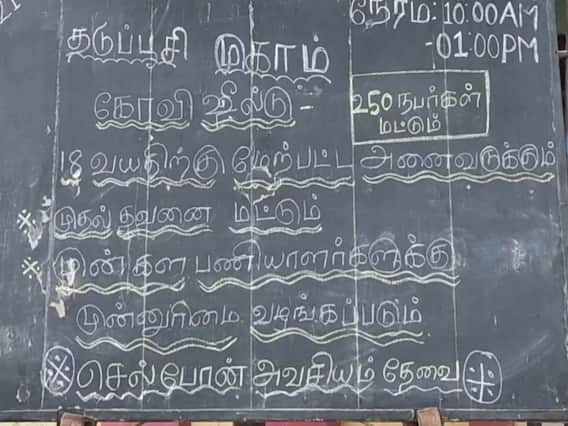 21
நேரம்: 10:00AM
-01:00PM
தடுப்பூசி முகாம்
கோவி ஷீல்டு -
250 நபர்கள்
மட்டும்
18 வயதிற்கு மேற்பட்ட அனைவருக்கும்
※ முதல் தவணை மட்டும்
※ முன் கள பணியாளர்களுக்கு
முன்னுரிமை வழங்கப்படும்
※ செல்போன் அவசியம் தேவை ※